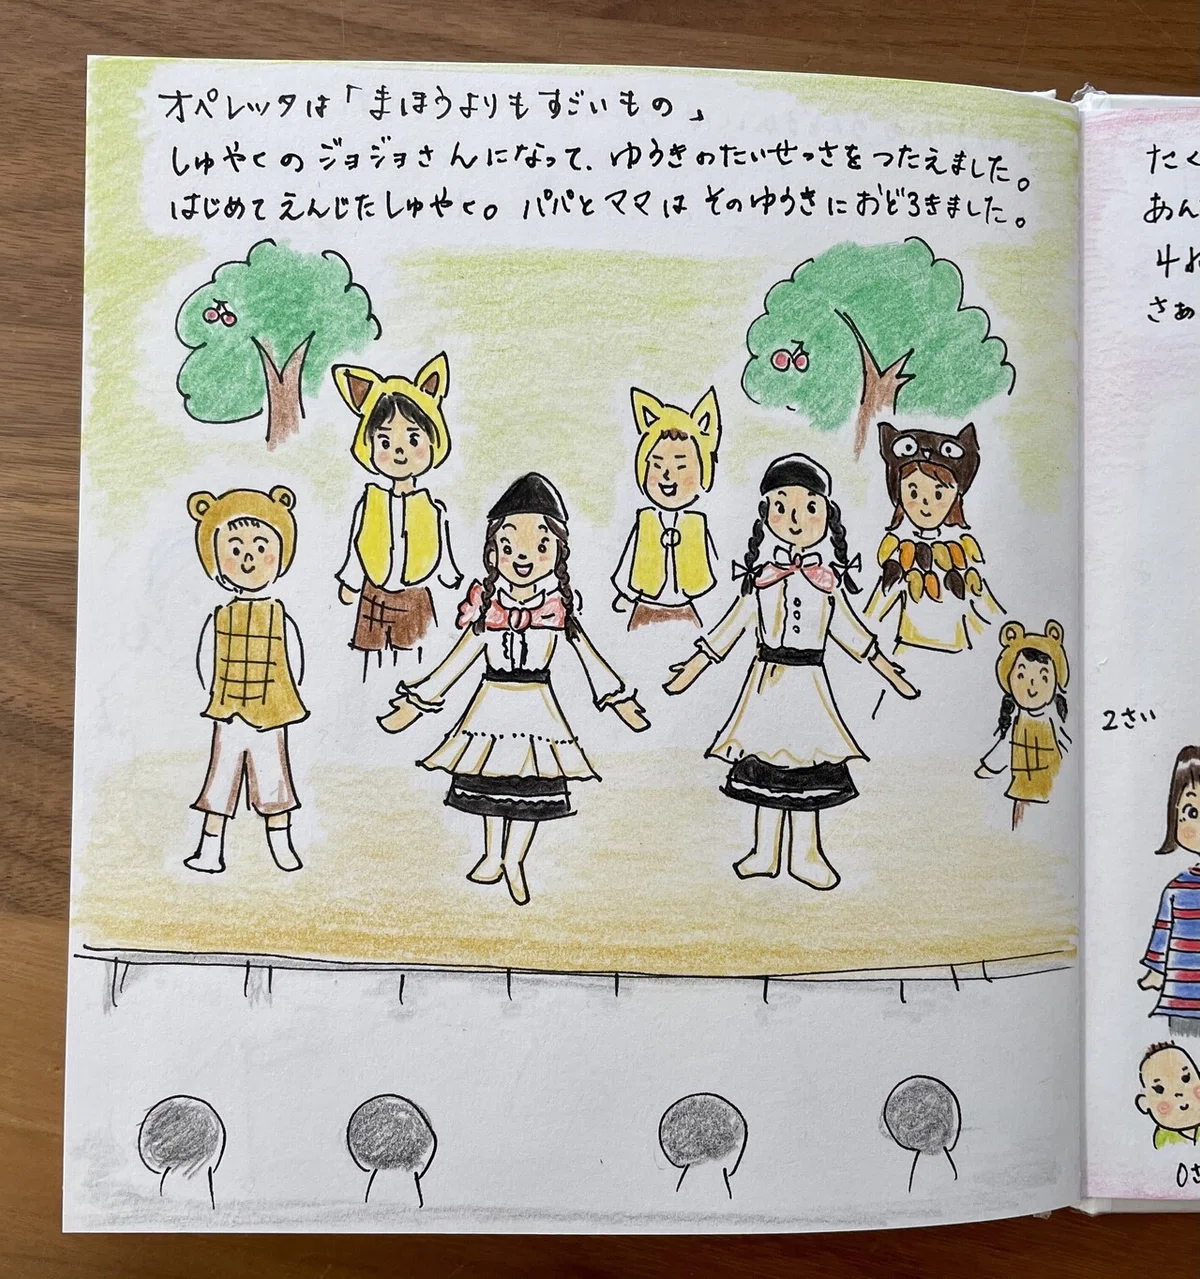 オペレッタは「まほうよりもすごいもの」
しゅやくのジョジョさんになって、ゆうきのたいせつさをつたえました。
はじめてえんじたしゅやく。パパとママはそのゆうきにおどろきました。
たく
あん
4ね
さあ
2さい
0さ